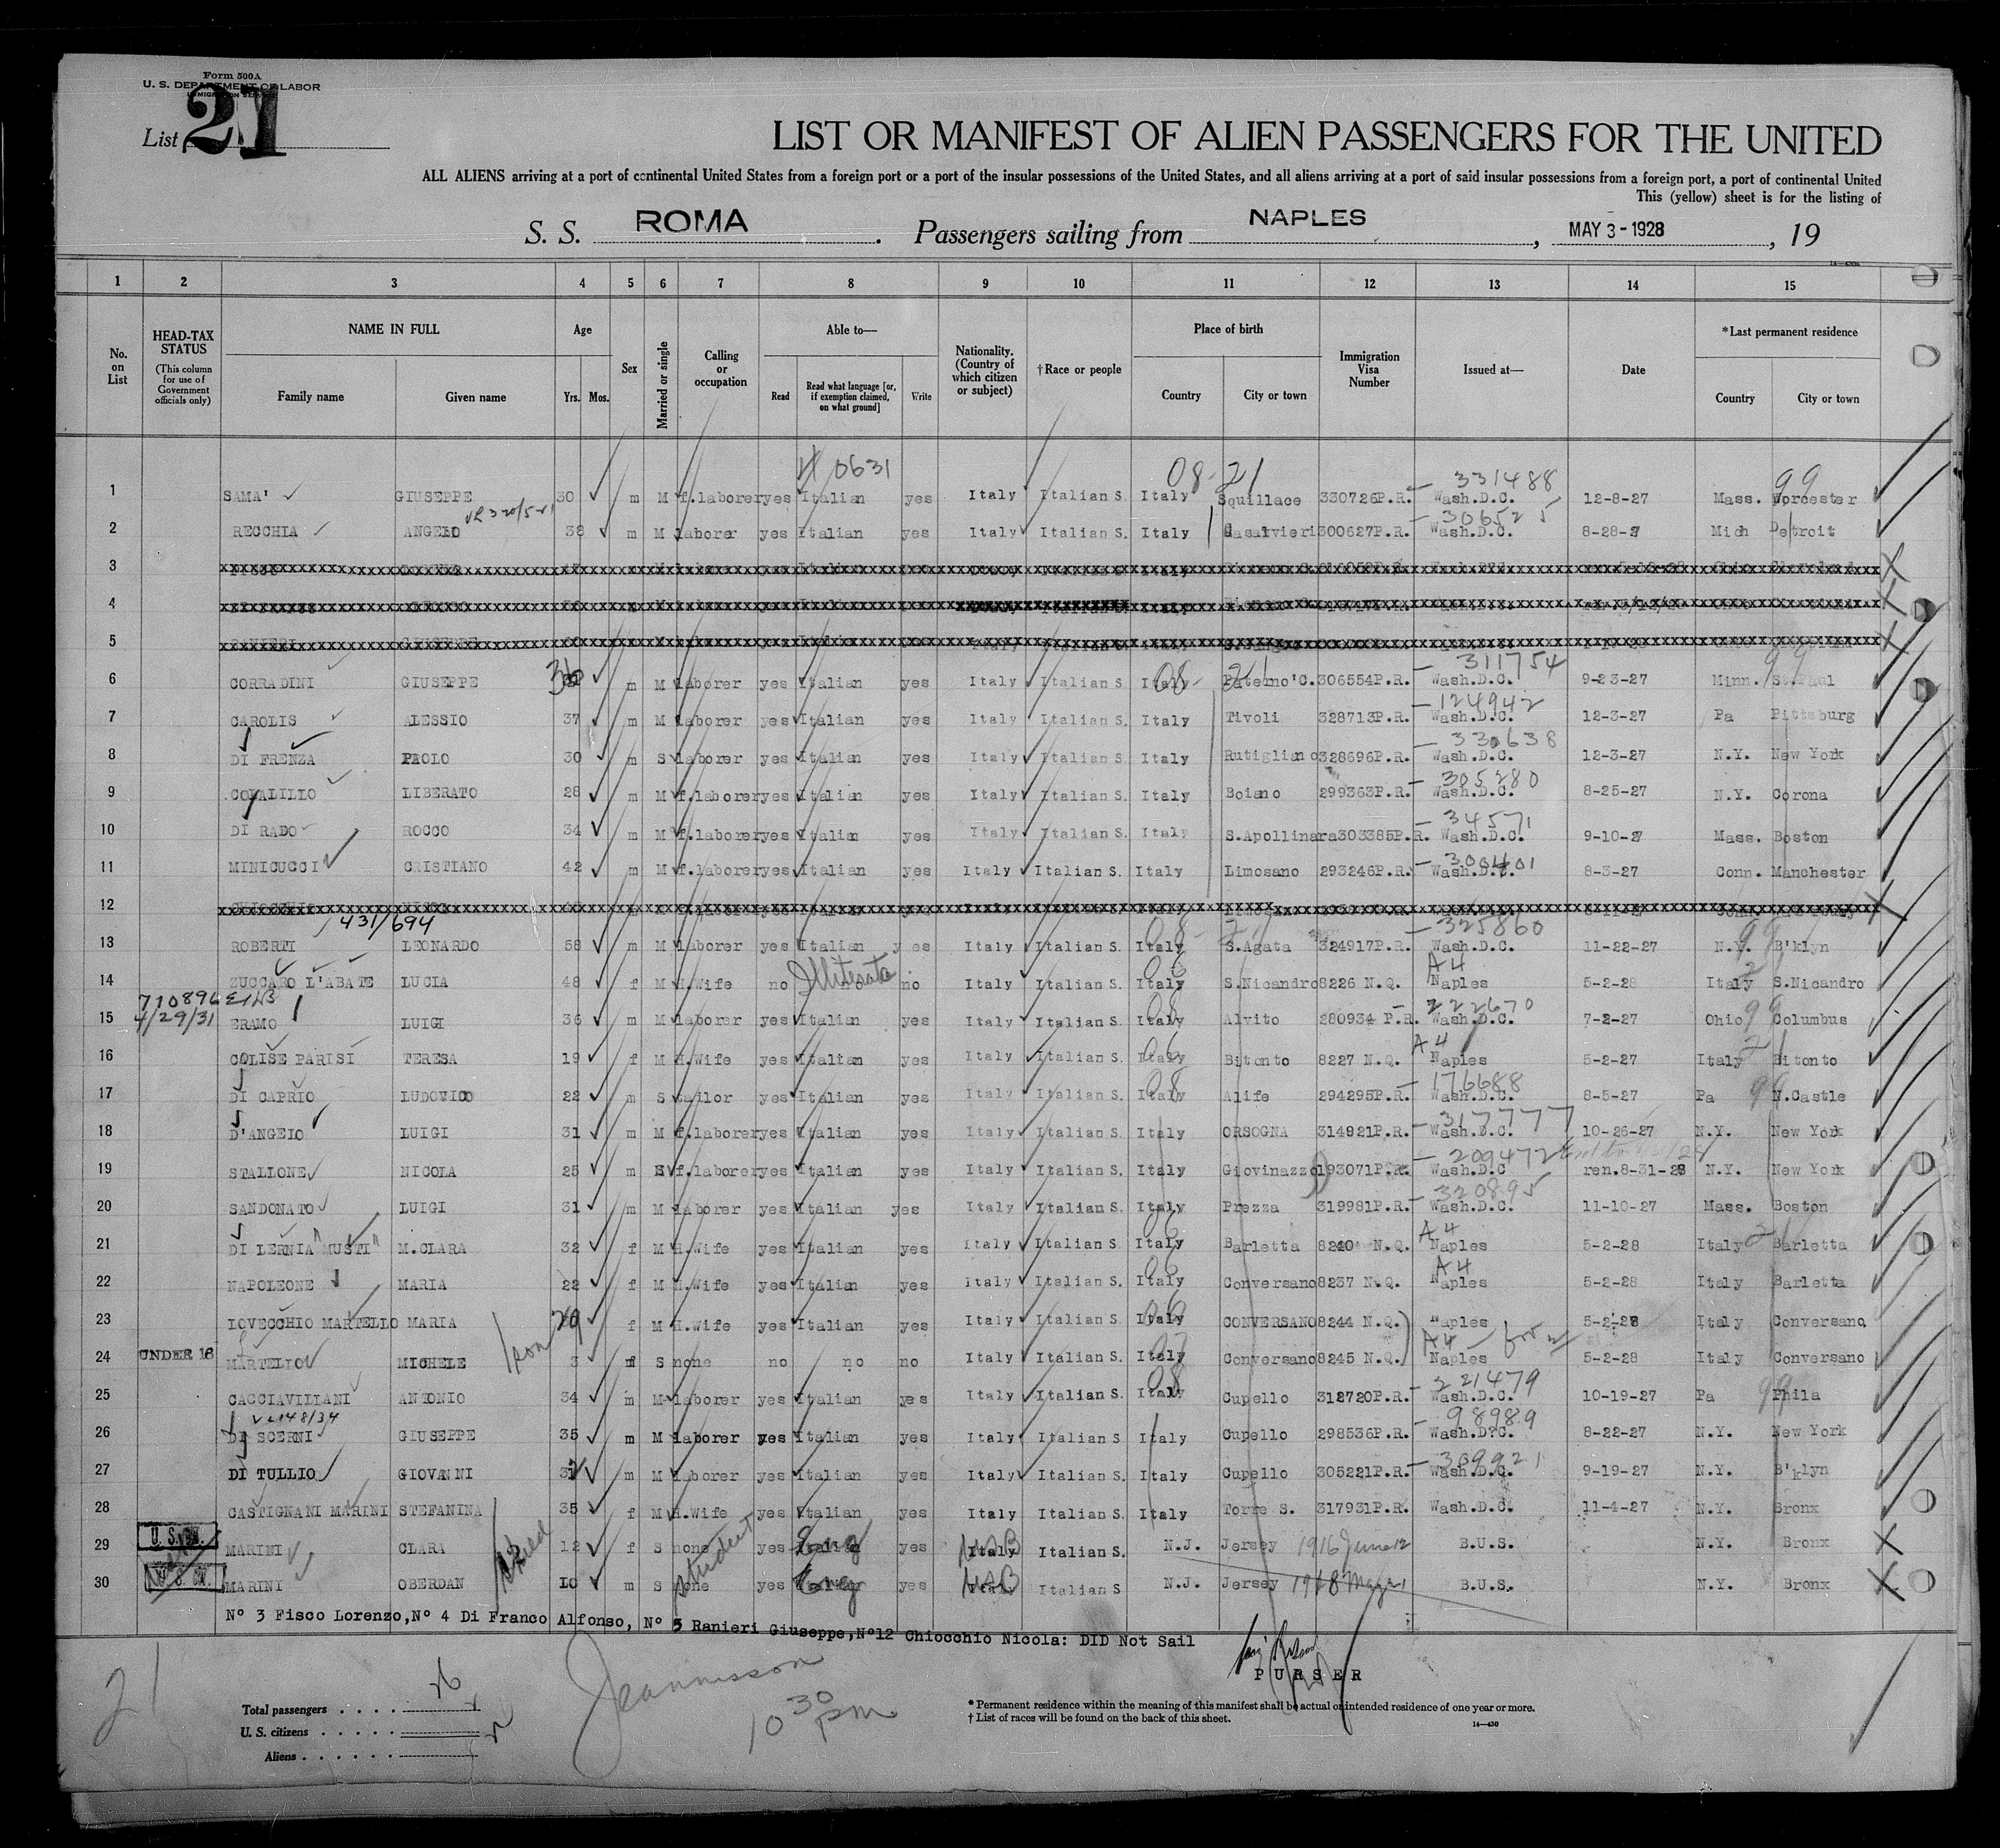 Form 500A
U. S. DEPARTMENT OF LABOR
List 21
LIST OR MANIFEST OF ALIEN PASSENGERS FOR THE UNITED
ALL ALIENS arriving at a port of continental United States from a foreign port or a port of the insular possessions of the United States, and all aliens arriving at a port of said insular possessions from a foreign port, a port of continental United
This (yellow) sheet is for the listing of
S. S. ROMA . Passengers sailing from NAPLES , MAY 3 - 1928 , 19
1 2 3 4 5 6 7 8 9 10 11 12 13 14 15
No. on List
HEAD-TAX STATUS (This column for use of Government officials only)
NAME IN FULL Family name Given name
Age Yrs. Mos.
Sex
Married or single
Calling or occupation
Able to— Read Read what language [or, if exemption claimed, on what ground] Write
Nationality. (Country of which citizen or subject)
†Race or people
Place of birth Country City or town
Immigration Visa Number
Issued at—
Date
*Last permanent residence Country City or town
0631 08-21 331488 99
1 SAMA' GIUSEPPE 30 m M f.laborer yes Italian yes Italy Italian S. Italy Squillace 330726P.R. Wash.D.C. 12-8-27 Mass. Worcester
306525
2 RECCHIA ANGELO 38 m M laborer yes Italian yes Italy Italian S. Italy Casalvieri 300627P.R. Wash.D.C. 8-28-2 Mich Detroit
3
4
5 RANIERI GIUSEPPE
311754 99
6 CORRADINI GIUSEPPE 36 m M laborer yes Italian yes Italy Italian S. Italy Paterno'C. 306554P.R. Wash.D.C. 9-23-27 Minn. St.Paul
124942
7 CAROLIS ALESSIO 37 m M laborer yes Italian yes Italy Italian S. Italy Tivoli 328713P.R. Wash.D.C. 12-3-27 Pa Pittsburg
330638
8 DI FRENZA PAOLO 30 m S laborer yes Italian yes Italy Italian S. Italy Rutigliano 328696P.R. Wash.D.C. 12-3-27 N.Y. New York
305280
9 COVALILLO LIBERATO 28 m M f.laborer yes Italian yes Italy Italian S. Italy Boiano 299363P.R. Wash.D.C. 8-25-27 N.Y. Corona
34571
10 DI RADO ROCCO 34 m M f.laborer yes Italian yes Italy Italian S. Italy S.Apollinara 303385P.R. Wash.D.C. 9-10-27 Mass. Boston
300401
11 MINICUCCI CRISTIANO 42 m M f.laborer yes Italian yes Italy Italian S. Italy Limosano 293246P.R. Wash.D.C. 8-3-27 Conn. Manchester
12
431/694 325860
13 ROBERTI LEONARDO 58 m M laborer yes Italian yes Italy Italian S. Italy S.Agata 324917P.R. Wash.D.C. 11-22-27 N.Y. B'klyn
A4
14 ZUCCARO L'ABATE LUCIA 48 f M H.Wife no Illiterate no Italy Italian S. Italy S.Nicandro 8226 N.Q. Naples 5-2-28 Italy S.Nicandro
710896 222670
4/29/31
15 ERAMO LUIGI 36 m M laborer yes Italian yes Italy Italian S. Italy Alvito 280934 P.R. Wash.D.C. 7-2-27 Ohio Columbus
A4
16 COLISE PARISI TERESA 19 f M H.Wife yes Italian yes Italy Italian S. Italy Bitonto 8227 N.Q. Naples 5-2-27 Italy Bitonto
176688
17 DI CAPRIO LUDOVICO 22 m S tailor yes Italian yes Italy Italian S. Italy Alife 294295P.R. Wash.D.C. 8-5-27 Pa N.Castle
317777
18 D'ANGELO LUIGI 31 m M f.laborer yes Italian yes Italy Italian S. Italy ORSOGNA 314821P.R. Wash.D.C. 10-26-27 N.Y. New York
209472
19 STALLONE NICOLA 25 m S f.laborer yes Italian yes Italy Italian S. Italy Giovinazzo 193071P.R. Wash.D.C ren.8-31-28 N.Y. New York
320895
20 SANDONATO LUIGI 31 m M laborer yes Italian yes Italy Italian S. Italy Prezza 319981P.R. Wash.D.C. 11-10-27 Mass. Boston
A4
21 DI LERNIA "MUSTI" M.CLARA 32 f M H.Wife yes Italian yes Italy Italian S. Italy Barletta 8240 N.Q. Naples 5-2-28 Italy Barletta
A4
22 NAPOLEONE MARIA 22 f M H.Wife yes Italian yes Italy Italian S. Italy Conversano 8237 N.Q. Naples 5-2-28 Italy Barletta
23 IOVECCHIO MARTELLO MARIA f M H.Wife yes Italian yes Italy Italian S. Italy CONVERSANO 8244 N.Q. Naples 5-2-28 Italy Conversano
A4
24 UNDER 16 MARTELLO MICHELE son 3 m S none no no no Italy Italian S. Italy Conversano 8245 N.Q. Naples 5-2-28 Italy Conversano
221479
25 CACCIAVILLANI ANTONIO 34 m M laborer yes Italian yes Italy Italian S. Italy Cupello 312720P.R. Wash.D.C. 10-19-27 Pa Phila
98989
26 DI SCERNI GIUSEPPE 35 m M laborer yes Italian yes Italy Italian S Italy Cupello 298536P.R. Wash.D.C. 8-22-27 N.Y. New York
309921
27 DI TULLIO GIOVANNI 32 m M laborer yes Italian yes Italy Italian S. Italy Cupello 305221P.R. Wash.D.C. 9-19-27 N.Y. B'klyn
28 CASTIGNANI MARINI STEFANINA 35 f M H.Wife yes Italian yes Italy Italian S. Italy Torre S. 317931P.R. Wash.D.C. 11-4-27 N.Y. Bronx
29 MARINI CLARA 12 f S none yes Eng yes USB Italian S. N.J. Jersey 1916 June 12 B.U.S. N.Y. Bronx
30 MARINI OBERDAN 10 m S student yes Eng yes USB Italian S N.J. Jersey B.U.S. N.Y. Bronx
Nº 3 Fisco Lorenzo,Nº 4 Di Franco Alfonso, Nº 5 Ranieri Giuseppe,Nº12 Chiocchio Nicola: DID Not Sail
PURSER
21
Total passengers . . . . 26
U. S. citizens . . . . 2
Aliens . . . . . .
Jeannisson
10 30 pm
* Permanent residence within the meaning of this manifest shall be actual or intended residence of one year or more.
† List of races will be found on the back of this sheet.
14—430